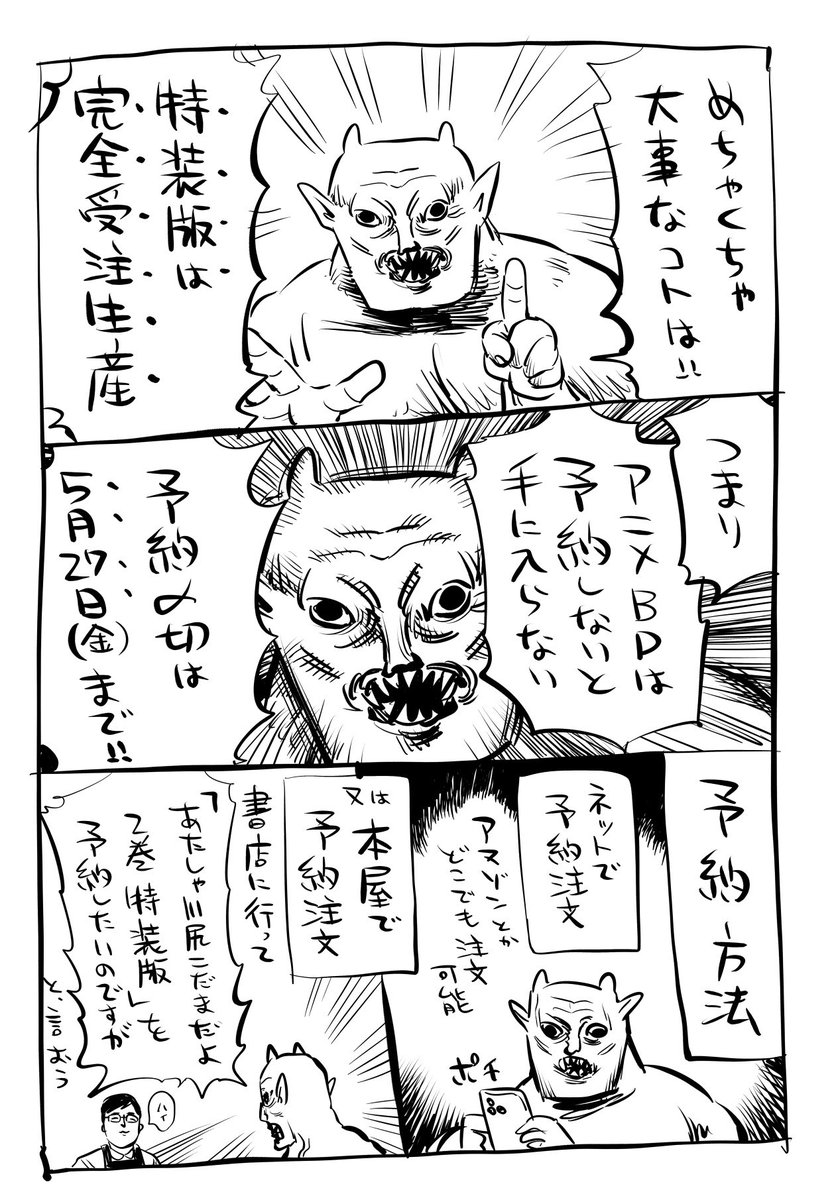 めちゃくちゃ
大事なコトは!!
特装版は
完全受注生産
つまり
アニメBDは
予約しないと
手に入らない
予約〆切は
5月27日(金)まで!!
予約方法
ネットで
予約注文
アマゾンとか
どこでも注文
可能
ポチ
又は
本屋で
予約注文
書店に行って
「あたしゃ川尻こだまだよ
2巻特装版」を
予約したいのですが
と、言おう
ハイ